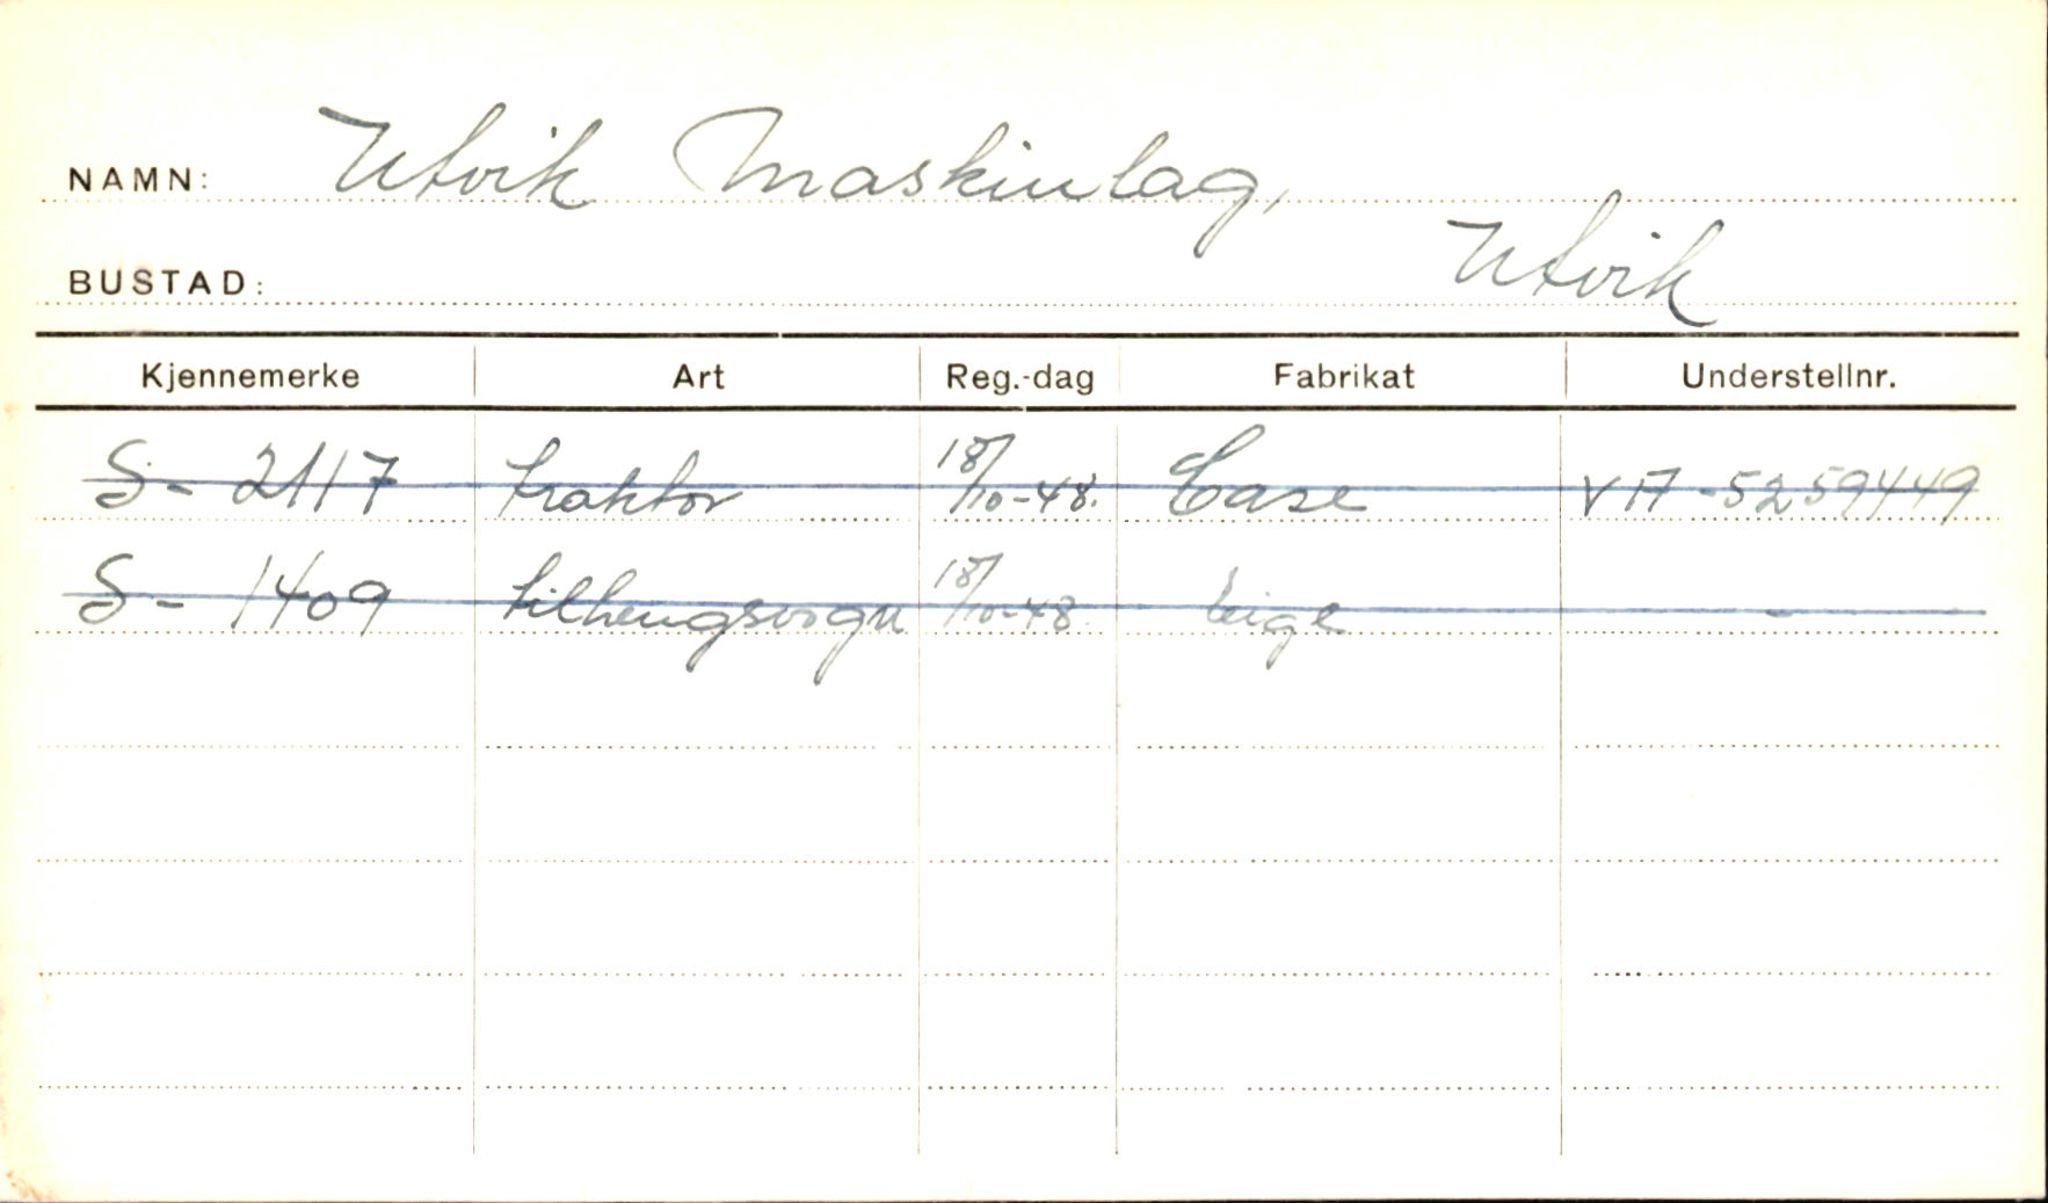 NAMN: Utvik Maskinlag,
BUSTAD: Utvik
Kjennemerke Art Reg.-dag Fabrikat Understellnr.
S- 2117 traktor 18/10-48. Case VA-5259449
S- 1409 tilhengsvogn 18/10-48. Eige -